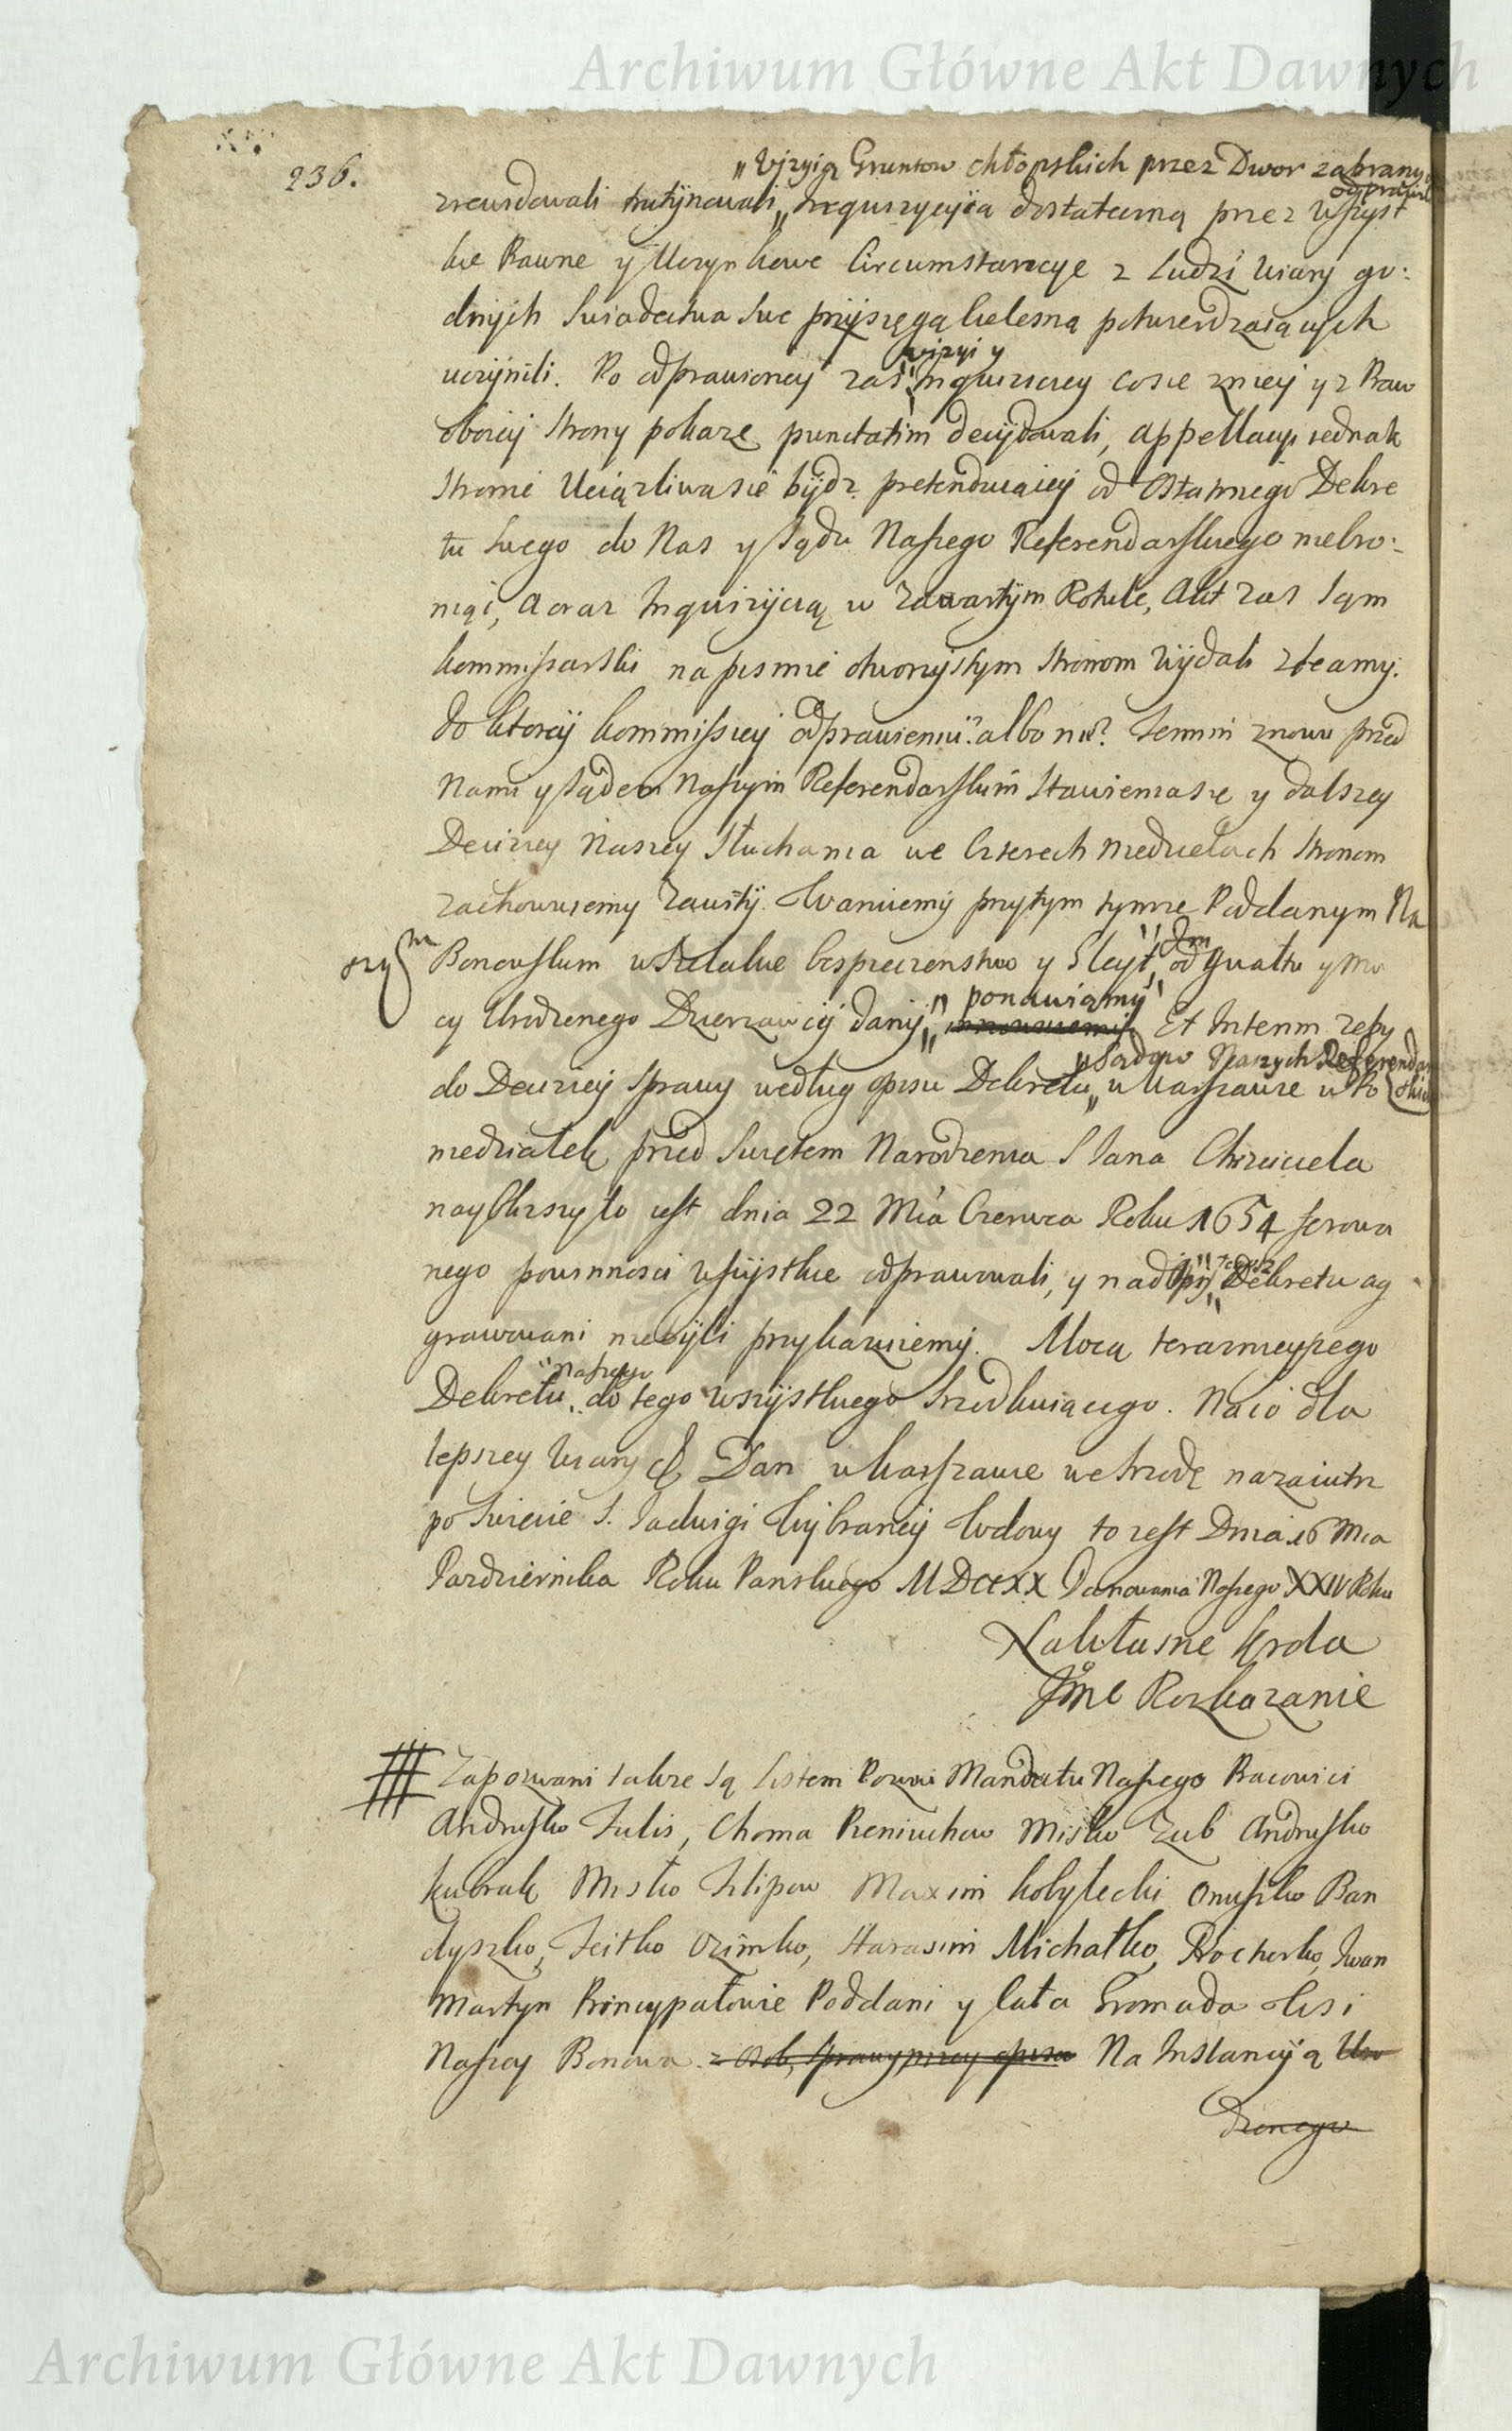 Archiwum Główne Akt Dawnych
236.
„Wizyią Gruntow chłopskich przez Dwor zabranych
odprawili
zrewidowali trutÿnowali „ Inquizycyią dostateczną przez wszyst
kie Prawne y Uczynkowe Circumstancye z Ludzi wiary go:
dnÿch swiadectwa swe przÿsięgą cielesną potwierdzaiących
uczÿnili. Po odprawioney zas Inquizicyey co sie zniey y z Praw
wizyi y
oboiey strony pokaze punctatim decÿdowali, appellacyi iednak
stronie Uciązliwa sie bÿdz pretenduiącey od Ostatniego Dekre
tu swego do Nas y Sądu Naszego Referendarskiego niebro:
niąc, a oraz Inquizÿcią w Zawartÿm Rotule, Akt zas sąm
kommissarski na pismie otworzÿstym stronom wÿdali zleamÿ.
Po ktorey kommissyey odprawieniu? albo nie? Termin znowu przed
Nami y sądem Naszym Referendarskim stawienia się y dalszey
Decizyey Naszey słuchania we Czterech Niedzielach stronom
zachowuiemy Zawitÿ. Waruiemy przytym tymze Poddanym Na
szym Bonowskim wszelakie bespieczenstwo y Gleyt, od gwałtu y mo
cy Urodzonego Dzierzawcÿ danÿ „ ponawiąmy Et Interim zeby
„ Sądow Naszych Referendar
skich
do Decizÿey sprawy według opisu Dekretu „ w Warszawie w Po
niedziałek przed swietem Narodzenia S Jana Chrzciciela
nayblizszy to iest dnia 22 Mca Czerwca Roku 1654 ferowa
nego powinnosci wszÿstkie odprawowali, y nad opis Dekretu ag
tegoz
grawowani niebÿli przykazuiemÿ. Mocą teraznieyszego
Dekretu „ do tego wszÿstkiego srzodkuiącego. Na co dla
naszego
lepszey wiary & Dan w Warszawie we srzodę nazaiutrz
po swiecie S. Jadwigi Wÿbraney Wdowy to iest Dnia 16 Mca
Pazdziernika Roku Panskiego MDCCXX Panowania Naszego XXIV Roku
Na własne Krola
Jme Rozkazanie
Zapozwani takze są Listem Pozwu Mandatu Naszego Pracowici
Andruszko Fulis, Choma Reniuchow Misko Zub Andruszko
Kubrak Misko Filipow Maxim Kobylecki Onuszko Ban
dyszko, Feitko Ozimko, Harasim Michałko, Prochorko, Iwan
Martyn Principałowie Poddani y Cała Gromada Wsi
Naszey Bonowa z osob, sprawy Na Instancÿą Uro
dzonego
Archiwum Główne Akt Dawnych